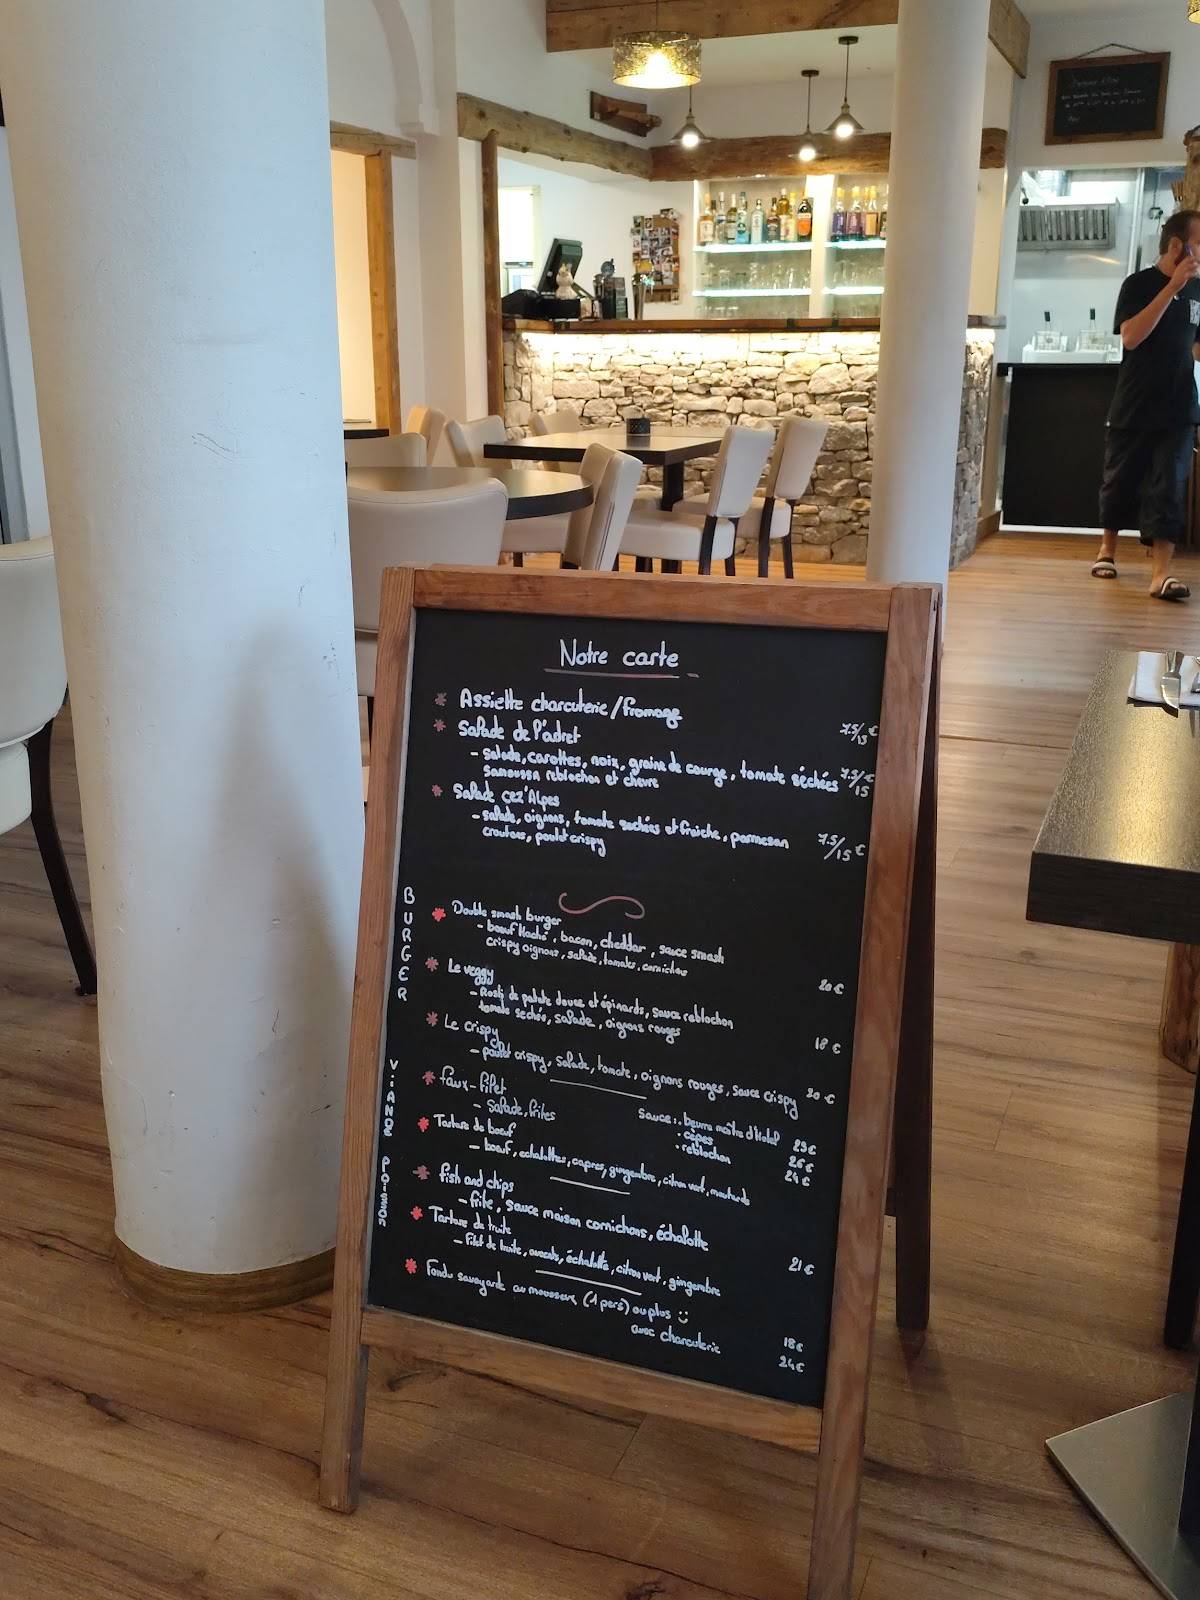 Notre carte
* Assiette charcuterie/fromage 7.5/15 €
* Salade de l'adret
- salade, carottes, noix, graine de courge, tomate séchées 7.5/15 €
samoussa reblochon et chèvre
* Salade çez'Alpes
- salade, oignons, tomate sechées et fraiche, parmesan 7.5/15 €
croutons, poulet crispy
BURGER
* Double smash burger
- bœuf Haché, bacon, cheddar, sauce smash
crispy oignons, salade, tomates, cornichons 20 €
* Le veggy
- Rosti de patate douce et épinards, sauce reblochon
tomate sechée, salade, oignons rouges 18 €
* Le crispy
- poulet crispy, salade, tomate, oignons rouges, sauce crispy 20 €
VIANDE
* Faux-filet
- Salade, frites
Sauce: . beurre maître d'Hotel 23€
. cèpes 26€
. reblochon 24€
* Tartare de bœuf
- bœuf, echalottes, capres, gingembre, citron vert, moutarde
POISON
* Fish and chips
- frite, sauce maison cornichons, échalotte 21 €
* Tartare de truite
- filet de truite, avocats, échalotte, citron vert, gingembre
* Fondu savoyarde au mousseux (1 pers) ou plus 18€
avec charcuterie 24€